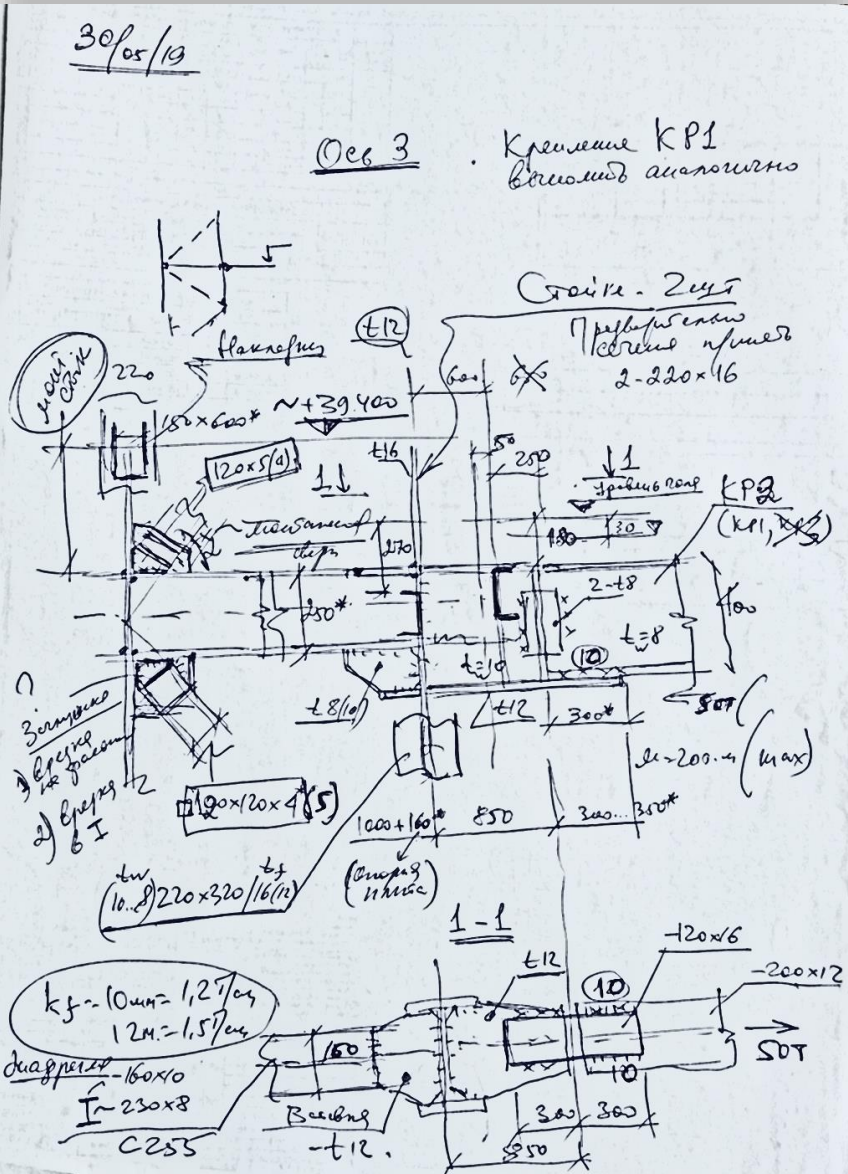 30/05/19
Ось 3
Крепление КР1
выполнить аналогично
Стойка - 2шт
Предварительно
сечения принять
2-220×16
t12
Накладки
монт.
стык
220
180×600*
~+39.400
600
t16
50
250
120×5(4)
1
1
уровень пола
КР2
270
180
30
250*
2-t8
400
t=10
tw=8
10
t8(10)
t12
300*
50т
М=200т.м (max)
?
Заглушка
1) врезка
2) врезка
в I
120×120×4*(5)
1000+160*
850
300...350*
(Опорная
плита)
tw
tf
(10...8)
220×320/16(12)
1-1
-120×16
t12
10
-200×12
kf=10мм=1,2Т/см
12м.=1,5Т/см
50т
диафрагма
-160×10
I~230×8
С255
160
10
Вставка
-t12.
300
300
850